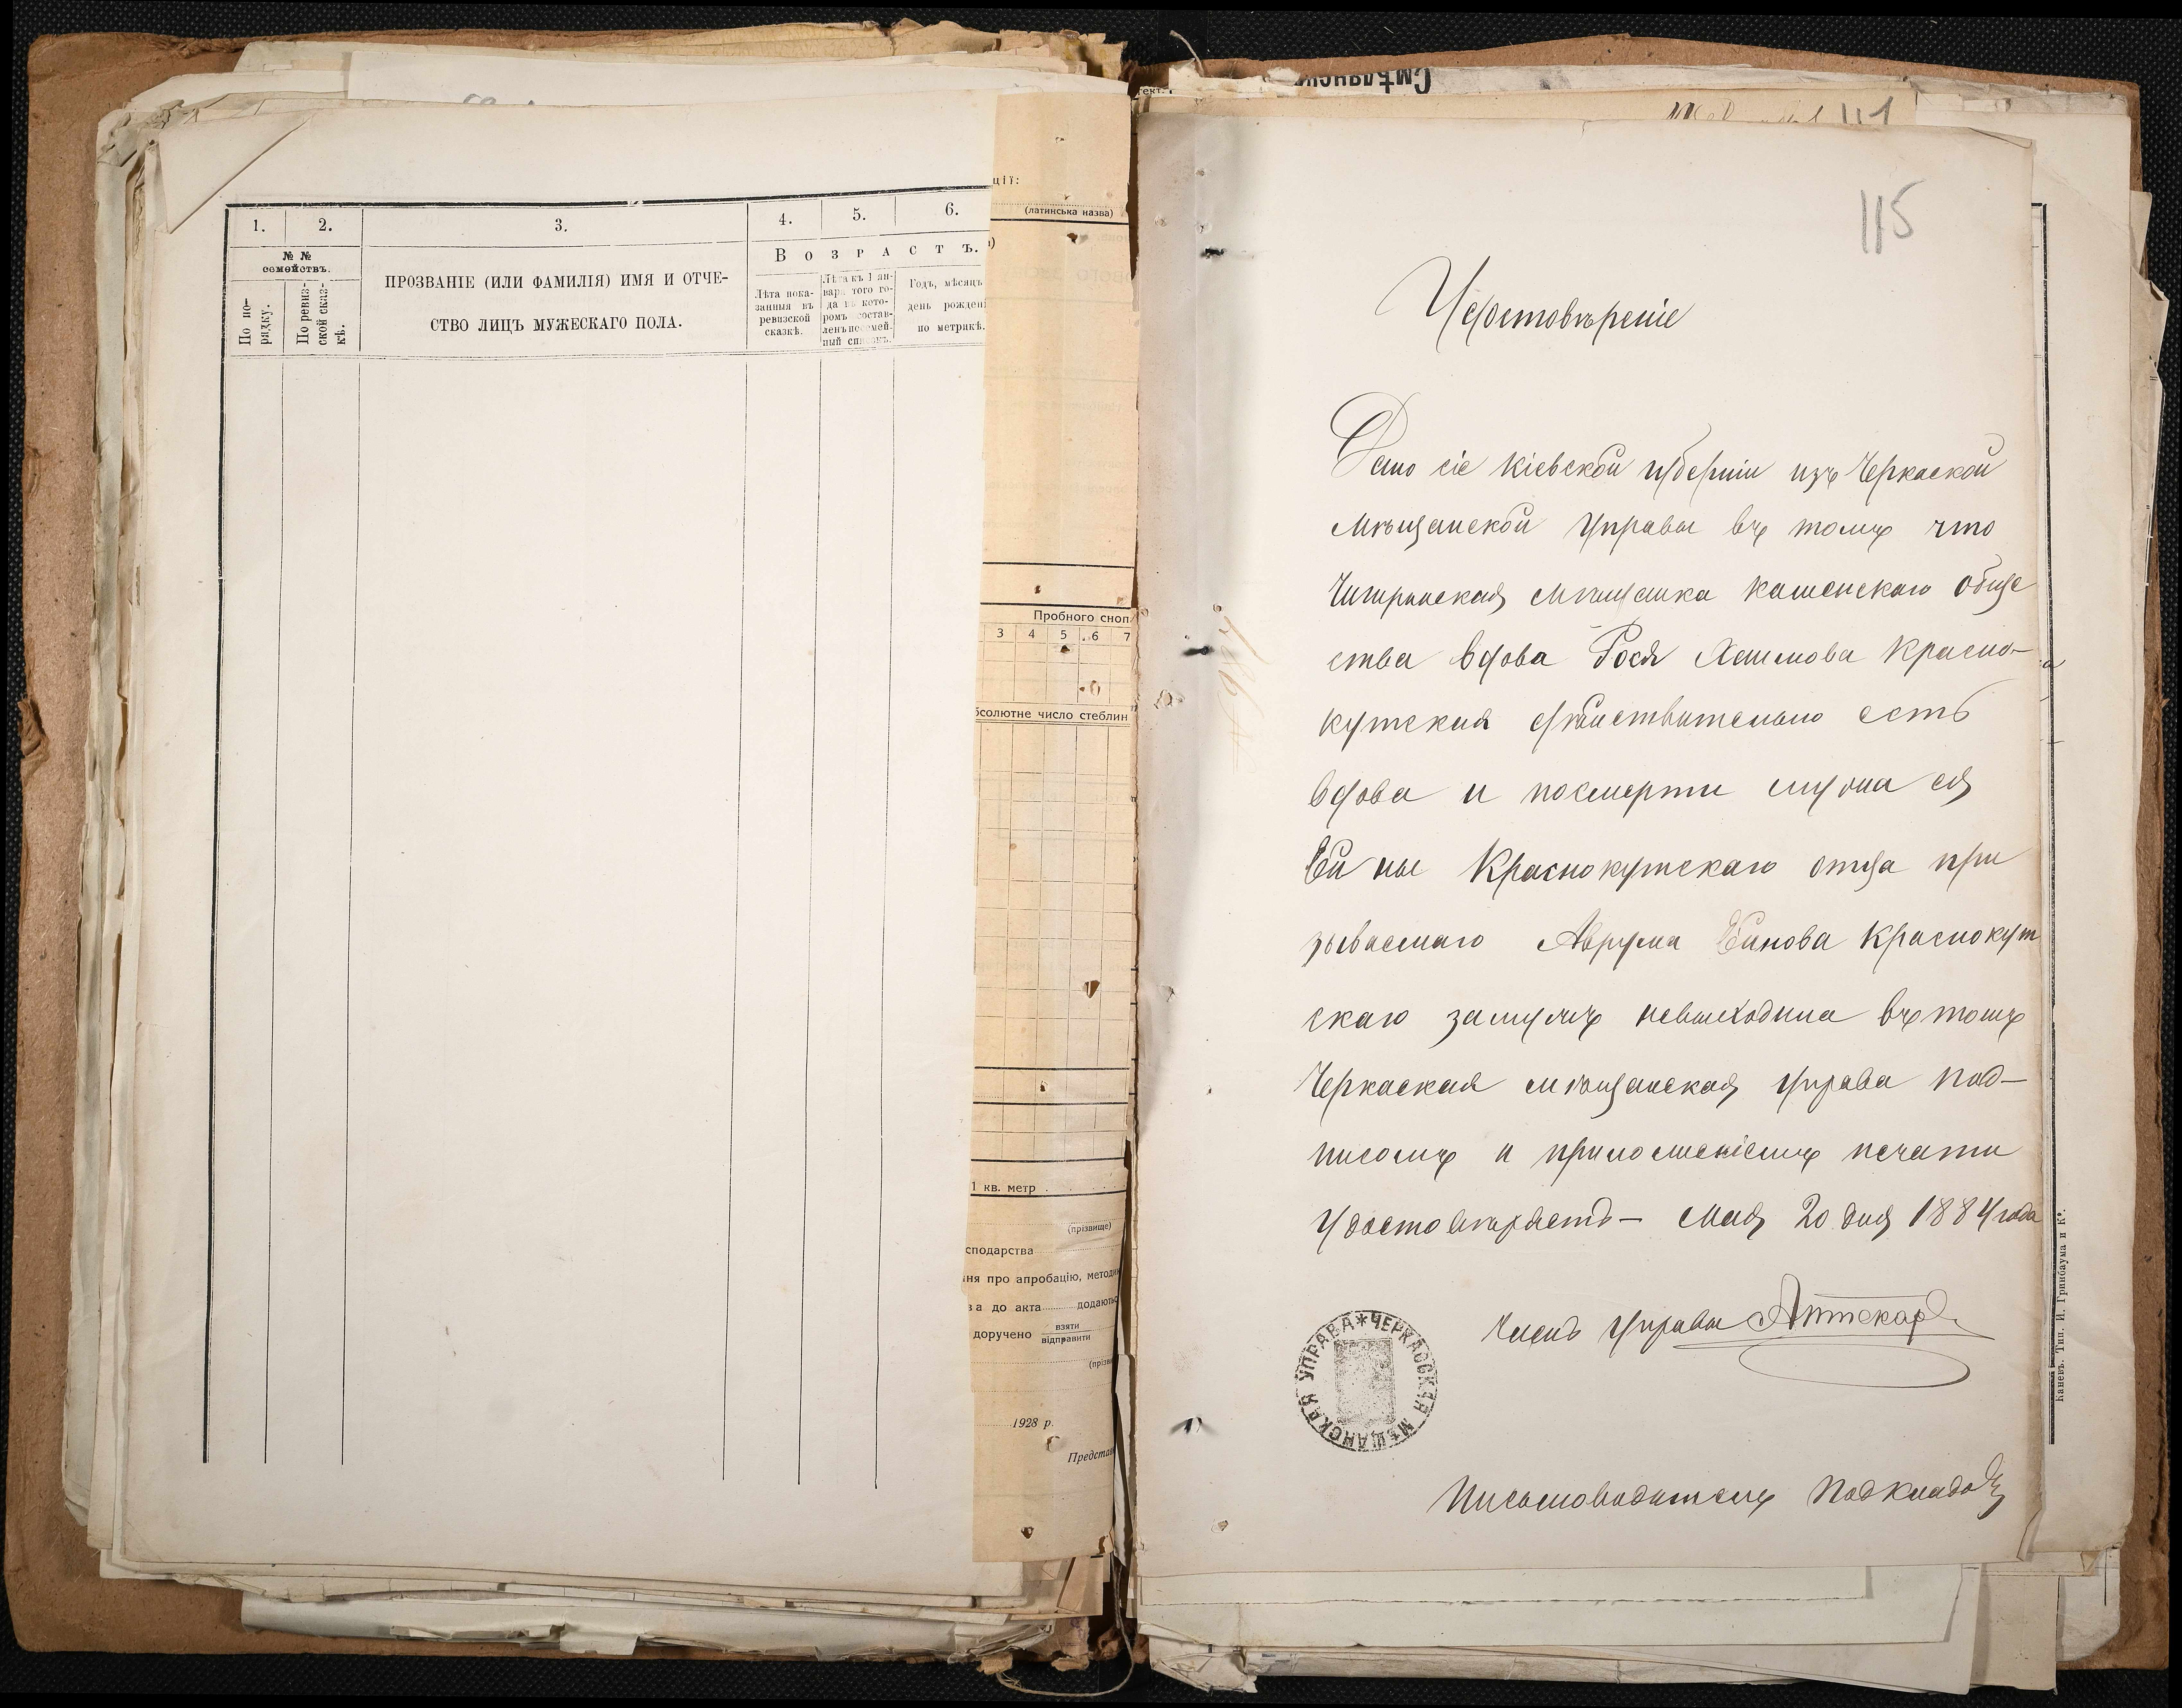 1.
2.
3.
4.
5.
6.
№ №
семействъ.
По по-
рядку.
По ревиз-
ской сказ-
кѣ.
ПРОЗВАНІЕ (ИЛИ ФАМИЛІЯ) ИМЯ И ОТЧЕ-
СТВО ЛИЦЪ МУЖЕСКАГО ПОЛА.
ВОЗРАСТЪ.
Лѣта пока-
занныя въ
ревизской
сказкѣ.
Лѣта къ 1 ян-
варя того го-
да въ кото-
ромъ состав-
ленъ посемей-
ный списокъ.
Годъ, мѣсяцъ
день рожденi
по метрикѣ.
ції:
(латинська назва)
Пробного сноп
3 4 5 6 7
бсолютне число стеблин
1 кв. метр
(прізвище)
сподарства
ня про апробацію, методи
ва до акта додають
доручено взяти
відправити
(прізв
1928 р.
Предста
Смѣлянск
111
115
Удостовѣреніе
Дано сіе Кіевской губерніи изъ Черкаской
Мѣщанской Управы въ томъ что
Чигиринская мѣщанка каменскаго обще
ства вдова Рося Хаимова Красно-
кутская дѣйствительно есть
вдова и посмерти мужа ея
Ейны Краснокутскаго отца при
зываемаго Аврума Ейнова Краснокут
скаго замужъ невыходила въ томъ
Черкаская мѣщанская управа под-
писомъ и приложеніемъ печати
Удостовѣряетъ- Мая 20 дня 1884 года
Членъ Управы Аптекарь
ЧЕРКАССКАЯ МѢЩАНСКАЯ УПРАВА
Письмоводитель
Каневъ. Тип. И. Гринбаума и Ко.